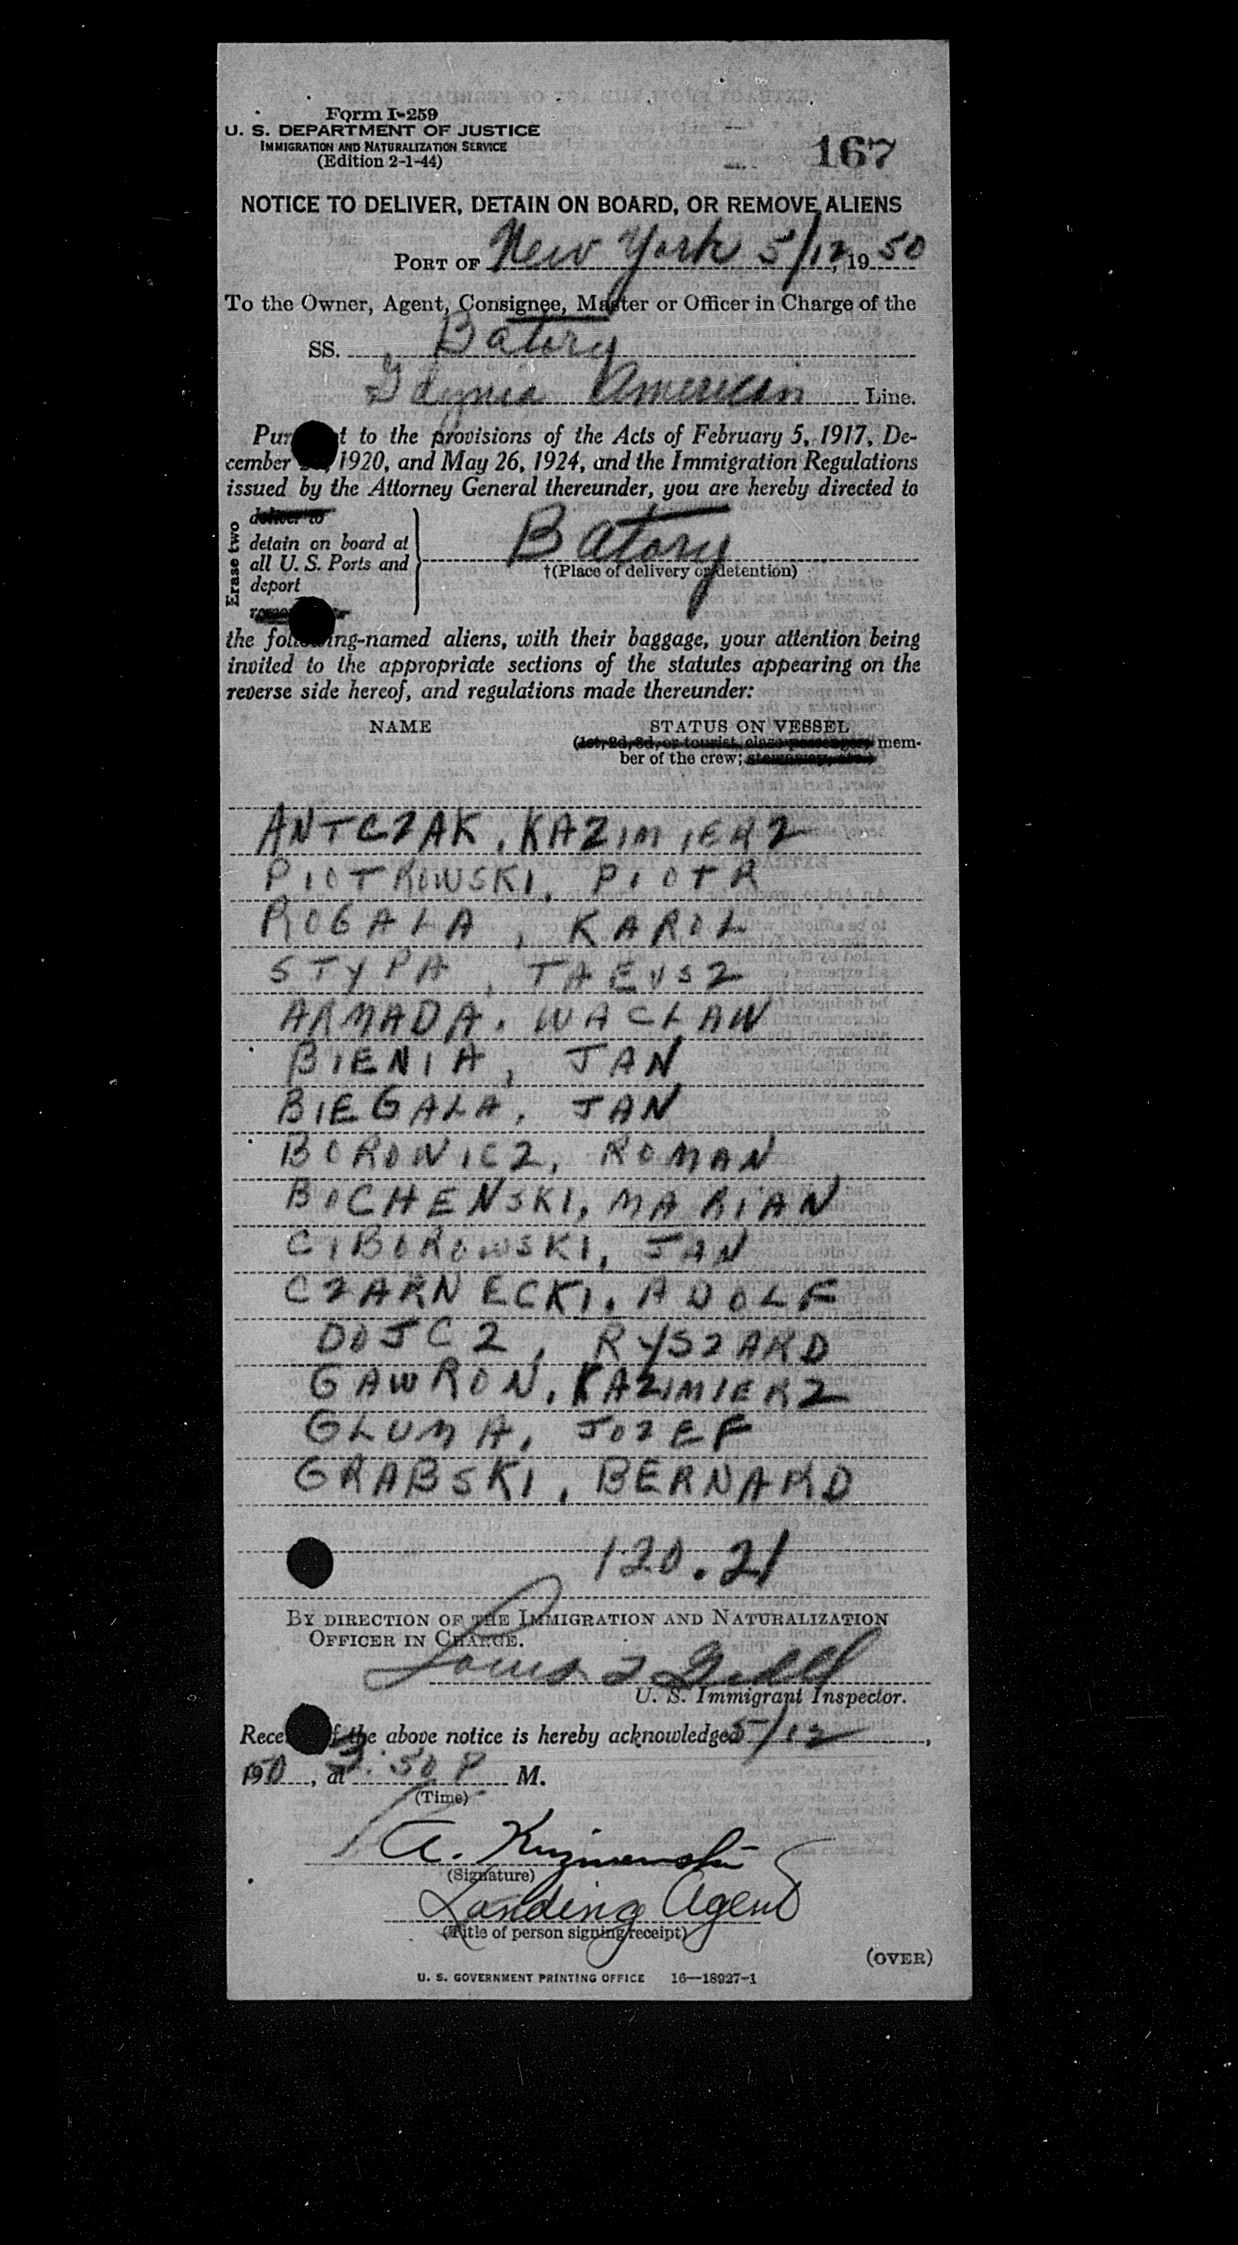 Form I-259
U. S. DEPARTMENT OF JUSTICE
IMMIGRATION AND NATURALIZATION SERVICE
(Edition 2-1-44)
167
NOTICE TO DELIVER, DETAIN ON BOARD, OR REMOVE ALIENS
PORT OF New York 5/12, 1950
To the Owner, Agent, Consignee, Master or Officer in Charge of the
SS. Batory
Gdynia American Line.
to the provisions of the Acts of February 5, 1917, De-
cember 1920, and May 26, 1924, and the Immigration Regulations
issued by the Attorney General thereunder, you are hereby directed to
Erase two
deliver to
detain on board at
all U. S. Ports and
deport
Batory
†(Place of delivery or detention)
the following-named aliens, with their baggage, your attention being
invited to the appropriate sections of the statutes appearing on the
reverse side hereof, and regulations made thereunder:
NAME STATUS ON VESSEL
(1st, 2d, 3d, or tourist, class passenger, mem-
ber of the crew; stowaway, etc.)
ANTCZAK, KAZIMIERZ
PIOTROWSKI, PIOTR
ROGALA, KAROL
STYPA, TAEUSZ
ARMADA, WACLAW
BIENIA, JAN
BIEGALA, JAN
BOROWICZ, ROMAN
BOCHENSKI, MARIAN
CIBOROWSKI, JAN
CZARNECKI, ADOLF
DOJCZ, RYSZARD
GAWRON, KAZIMIERZ
GLUMA, JOZEF
GRABSKI, BERNARD
120.21
BY DIRECTION OF THE IMMIGRATION AND NATURALIZATION
OFFICER IN CHARGE.
Louis
U. S. Immigrant Inspector.
the above notice is hereby acknowledged 5/12,
1950, at 3:50 P M.
(Time)
A.
(Signature)
Landing Agent
(Title of person signing receipt)
(OVER)
U. S. GOVERNMENT PRINTING OFFICE 16—18927-1